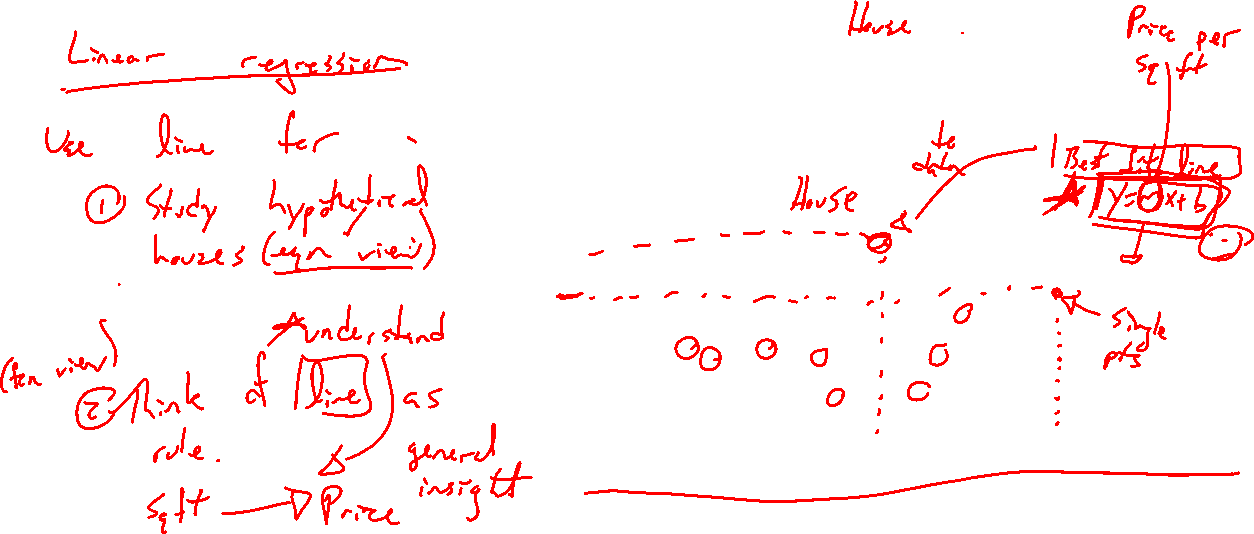 Linear regression
Use line for
① Study hypothetical
houses (eqn view)
understand
(fcn view)
② Think of line as
rule.
general
insight
sqft → Price
House
Price per
sq ft
to
data
Best fit line
y=mx+b
House
single
pts